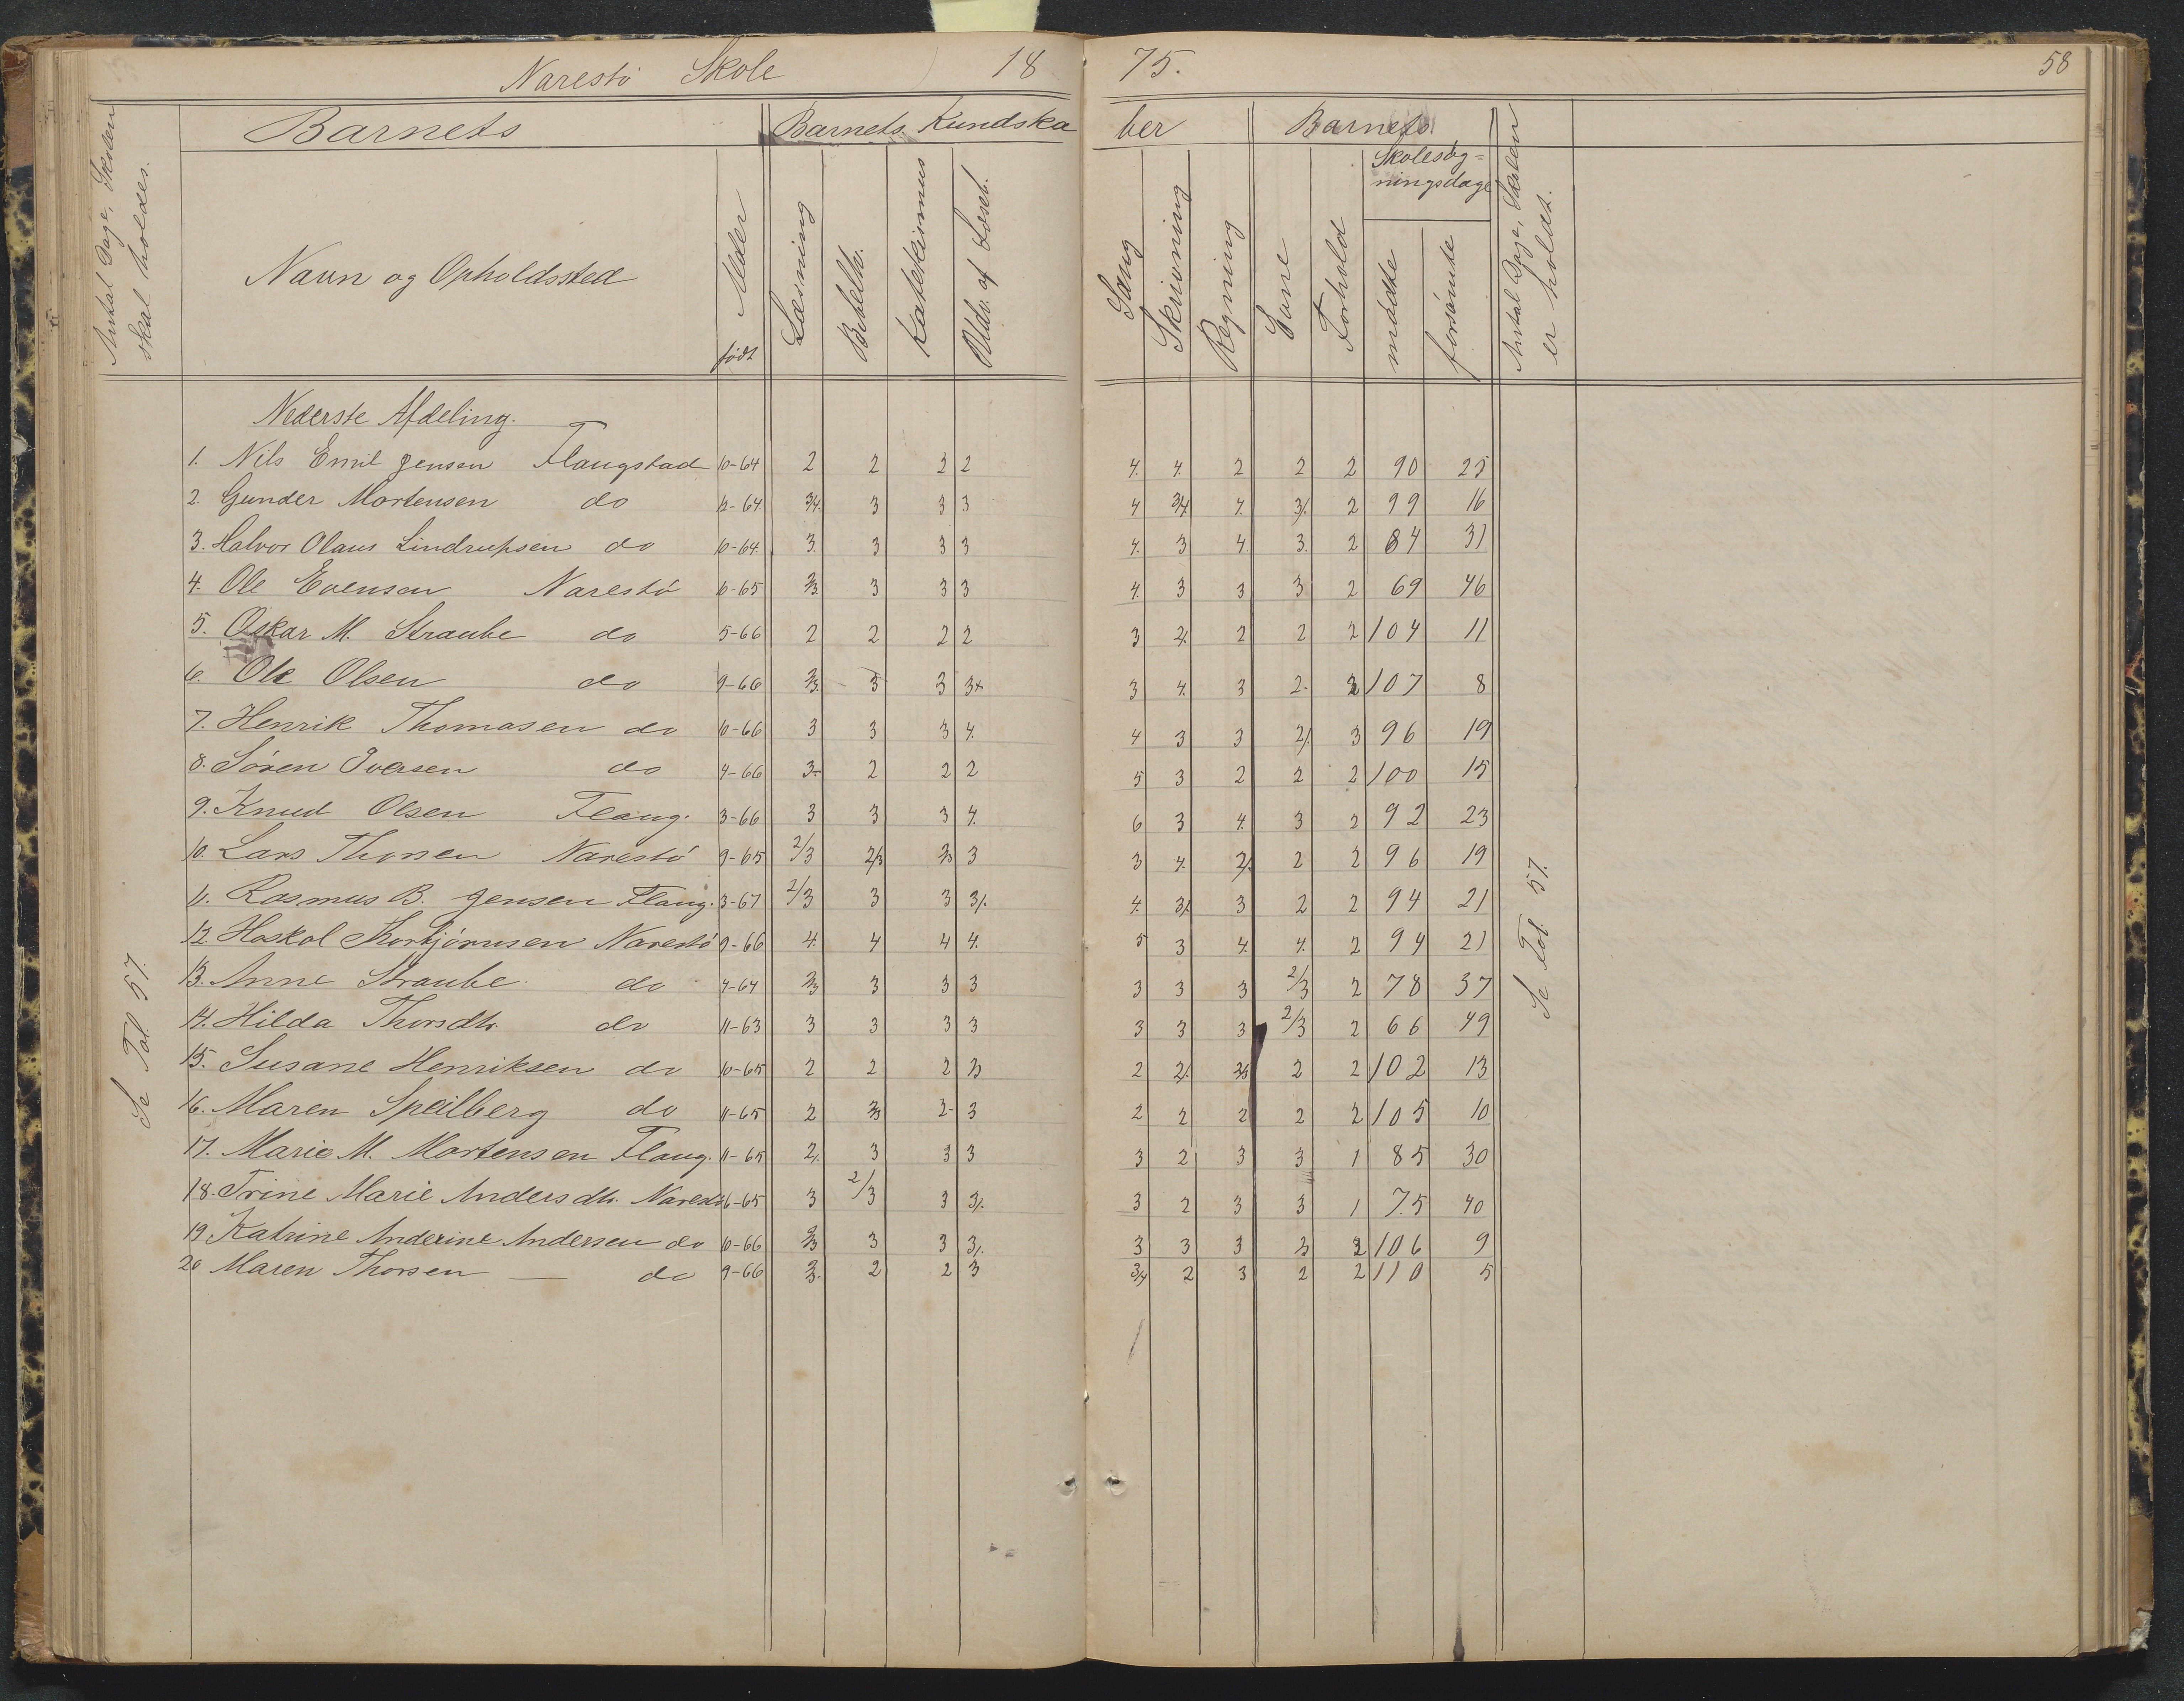 Narestö Skole 1875. 58
Antal Dage, Skolen skal holdes.
Barnets
Barnets Kundskaber
Barnets
Navn og Opholdssted
Alder
født
Læsning
Bibelh.
Katekismus
Udv. af Læseb.
Sang
Skrivning
Regning
Evne
Forhold
Skolesøg=
ningsdage
mødte
forsømte
Antal Dage, Skolen er holdt.
Nederste Afdeling.
1. Nils Emil Jensen Flaugstad 10-64 2 2 2 2 4. 4. 2 2 2 90 25
2. Gunder Mortensen do 12-64 3/4. 3 3 3 4 3/4 4. 3/. 2 99 16
3. Halvor Olaus Lindrupsen do 10-64 3. 3 3 3 4. 3 4. 3. 2 84 31
4. Ole Evensen Narestö 10-65 2/3 3 3 3 4. 3 3 3 2 69 46
5. Oskar M. Straube do 5-66 2 2 2 2 3 2/. 2 2 2 104 11
6. Ole Olsen do 9-66 2/3. 3 3 3+ 3 4. 3 2- 2 107 8
7. Henrik Thomasen do 10-66 3 3 3 4. 4 3 3 2/. 3 96 19
8. Sören Iversen do 4-66 3- 2 2 2 5 3 2 2 2 100 15
9. Knud Olsen Flaug. 3-66 3 3 3 4. 6 3 4. 3 2 92 23
10. Lars Thorsen Narestö 9-65 2/3 2/3 2/3 3 3 4. 2/. 2 2 96 19
11. Rasmus B. Jensen Flaug. 3-67 2/3 3 3 3/. 4. 3/. 3 2 2 94 21
12. Haskol Thorbjörnsen Narestö 9-66 4. 4 4 4. 5 3 4. 4. 2 94 21
13. Anne Straube do 4-64 2/3 3 3 3 3 3 3 2/3 2 78 37
14. Hilda Thorsdtr. do 11-63 3 3 3 3 3 3 3 2/3 2 66 49
15. Susane Henriksen do 10-65 2 2 2 2/3 2 2/. 2/3 2 2 102 13
16. Maren Speilberg do 11-65 2 2/3 2- 3 2 2 2 2 2 105 10
17. Marie M. Mortensen Flaug. 11-65 2/. 3 3 3 3 2 3 3 1 85 30
18. Trine Marie Andersdtr. Narestö 6-65 3 2/3 3 3/. 3 2 3 3 1 75 40
19 Katrine Anderine Andersen do 10-66 2/3 3 3 3/. 3 3 3 2/3 2 106 9
20 Maren Thorsen — do 9-66 2/3. 2 2 3 3/4 2 3 2 2 110 5
Se Fol. 57.
Se Fol. 57.